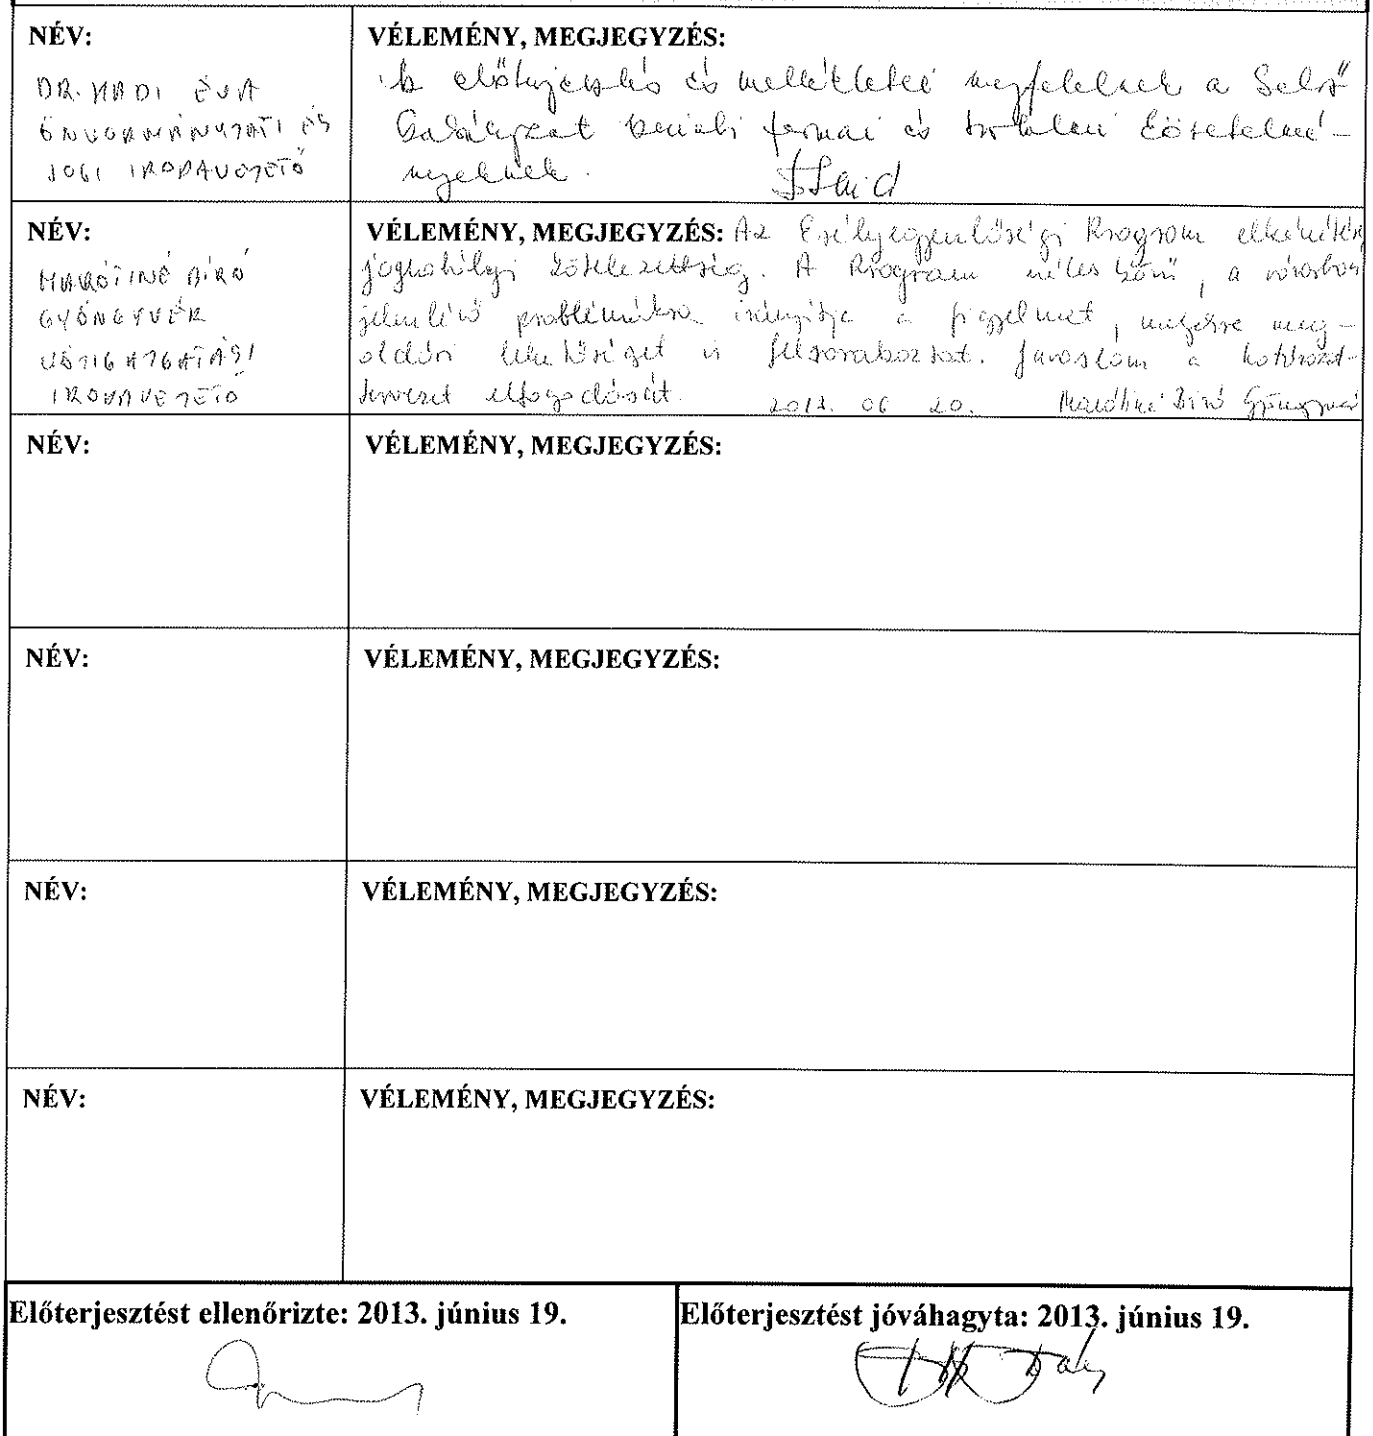 NÉV:
DR. HADI ÉVA
ÖNKORMÁNYZATI ÉS
JOGI IRODAVEZETŐ
VÉLEMÉNY, MEGJEGYZÉS:
Az előterjesztés és mellékletei megfelelnek a Belső
Szabályzat szerinti formai és tartalmi követelmé-
nyeknek.
NÉV:
MARÓTINÉ BÍRÓ
GYÖNGYVÉR
VÁSIGAZGATÁSI
IRODAVEZETŐ
VÉLEMÉNY, MEGJEGYZÉS: Az Esélyegyenlőségi Program elkészítése
jogszabályi kötelezettség. A Program széles körű, a városban
jelenlévő problémákra irányítja a figyelmet, melyekre meg-
oldási lehetőséget is felsorakoztat. Javaslom a határozat-
tervezet elfogadását. 2013. 06 20. Marótiné Bíró Gyöngyvér
NÉV:
VÉLEMÉNY, MEGJEGYZÉS:
NÉV:
VÉLEMÉNY, MEGJEGYZÉS:
NÉV:
VÉLEMÉNY, MEGJEGYZÉS:
NÉV:
VÉLEMÉNY, MEGJEGYZÉS:
Előterjesztést ellenőrizte: 2013. június 19.
Előterjesztést jóváhagyta: 2013. június 19.